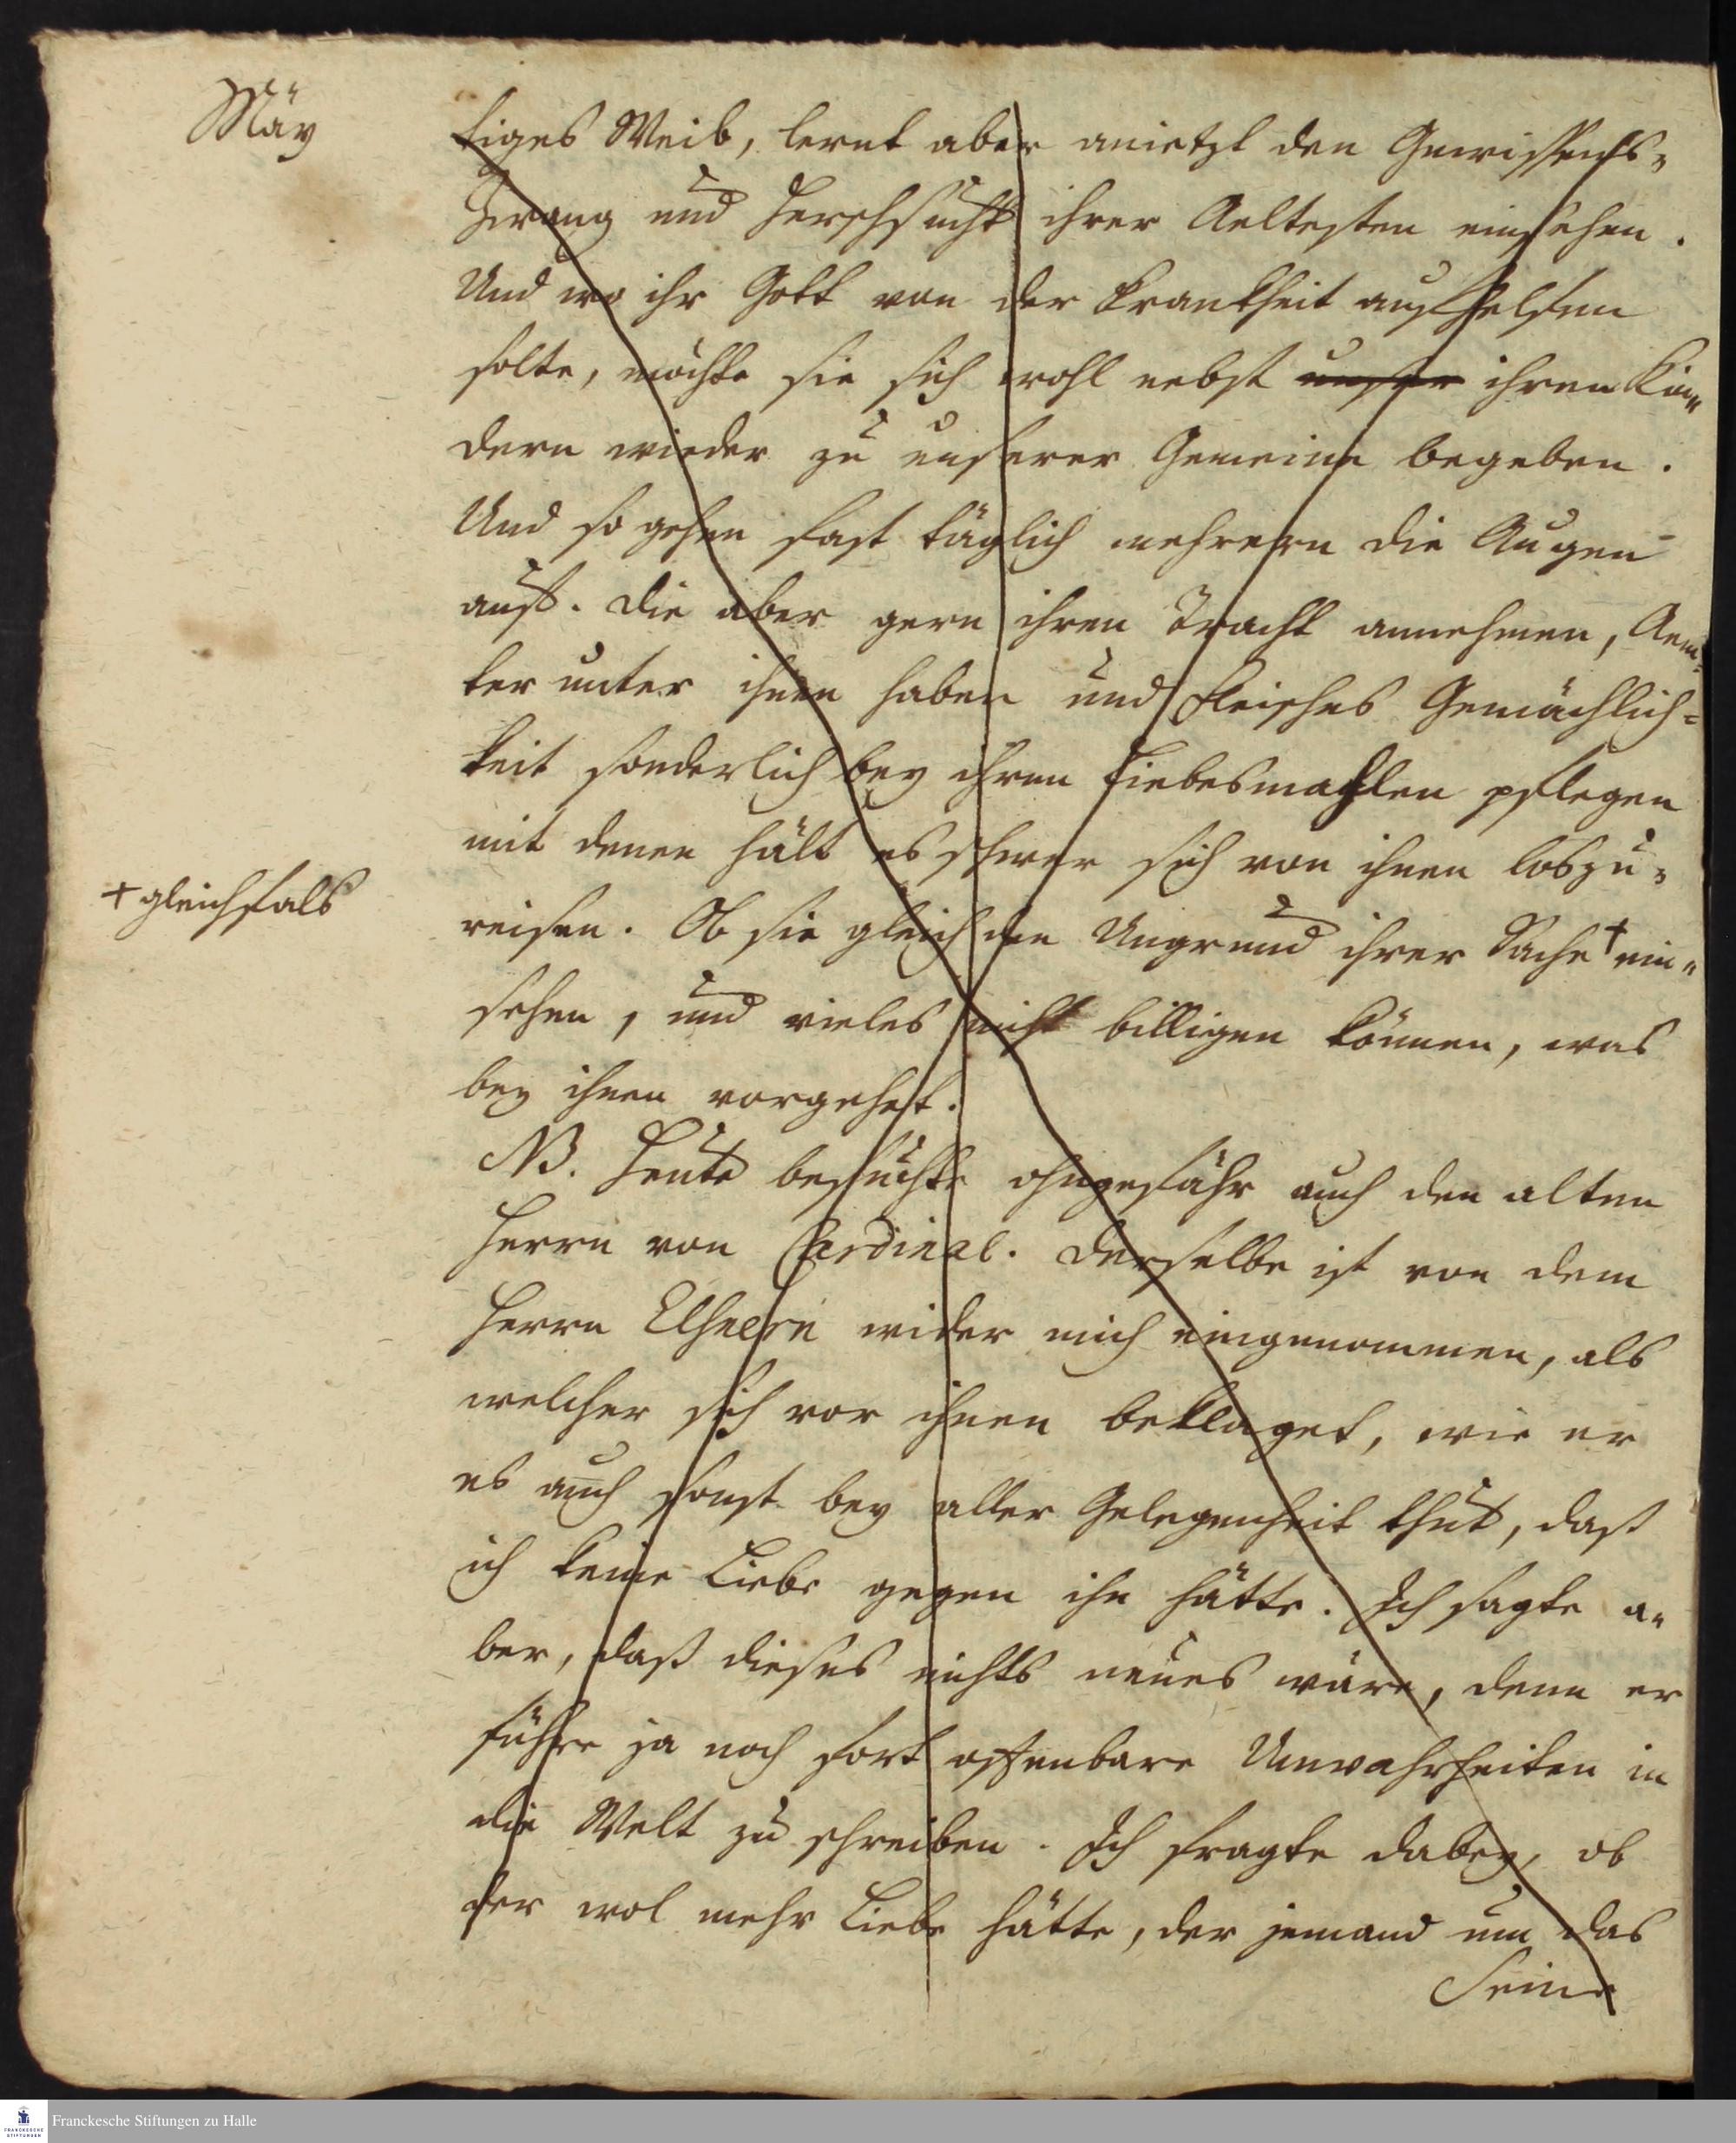 Mäy
tiges Weib, lernt aber anietzt den Gewissens-
Zwang und Herschsucht ihrer Aeltesten einsehen.
Und wo ihr Gott von der Krankheit aufhelfen
solte, möchte sie sich wohl nebst unser ihren Kin-
dern wieder zu unserer Gemeine begeben.
Und so gehen fast täglich mehrern die Augen
auf. Die aber gern ihren Tracht annehmen, Aem-
ter unter ihnen haben und Fleisches Gemächlich-
keit sonderlich bey ihren Liebesmahlen pflegen
mit denen hält es schwer sich von ihnen loszu-
+ gleichfals
reisen. Ob sie gleich den Ungrund ihrer Sache + ein-
sehen, und vieles nicht billigen können, was
bey ihnen vorgehet.
NB. Heute besuchte ohngefähr auch den alten
Herrn von Cardinal. Derselbe ist von dem
Herrn Elsnern wider mich eingenommen, als
welcher sich vor ihnen beklaget, wie er
es auch sonst bey aller Gelegenheit thut, daß
ich keine Liebe gegen ihn hätte. Ich sagte a-
ber, daß dieses nichts neues wäre, denn er
führe ja noch fort offenbare Unwahrheiten in
die Welt zu schreiben. Ich fragte dabey, ob
der wol mehr Liebe hätte, der jemand um das
Seine
Franckesche Stiftungen zu Halle
FRANCKESCHE
STIFTUNGEN